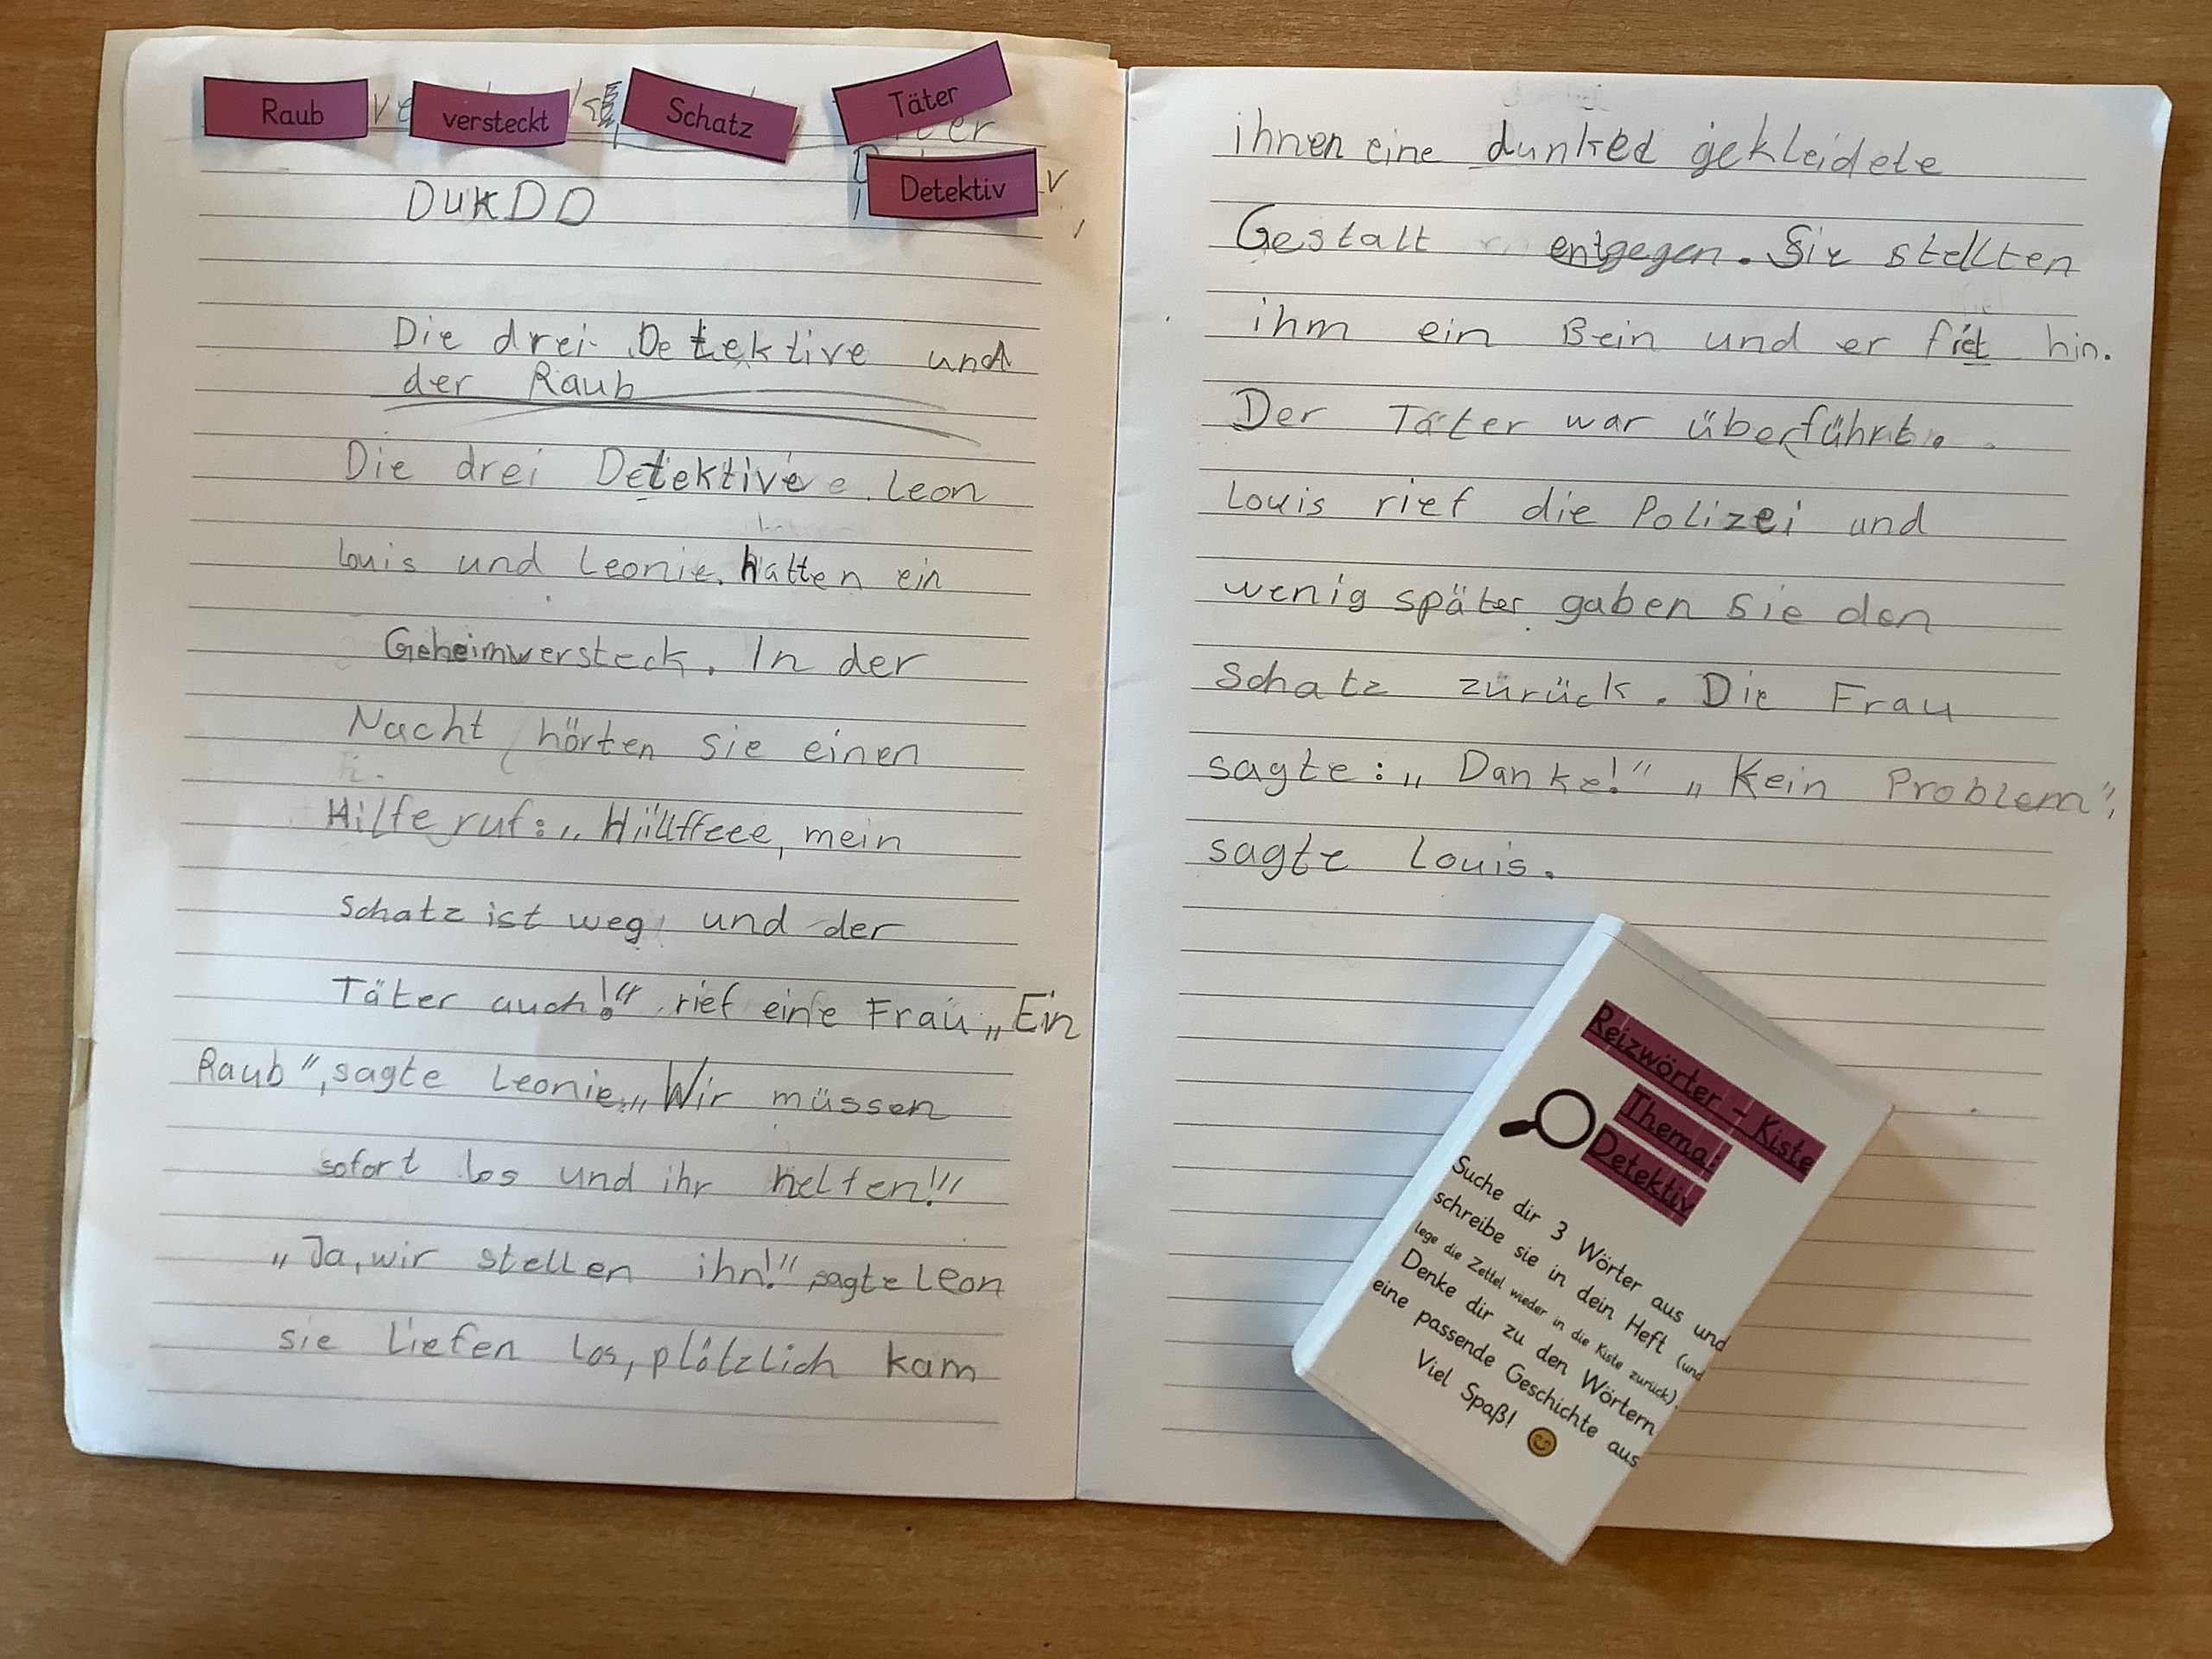 Raub versteckt Schatz Täter
Detektiv
DUKDD
Die drei Detektive und
der Raub
Die drei Detektive Leon
Louis und Leonie. hatten ein
Geheimversteck. In der
Nacht hörten sie einen
Hilferuf: „Hüllffeee, mein
Schatz ist weg und der
Täter auch!" rief eine Frau „Ein
Raub", sagte Leonie. „Wir müssen
sofort los und ihr helfen!"
„Ja, wir stellen ihn!" sagte Leon
sie liefen los, plötzlich kam
ihnen eine dunkel gekleidete
Gestalt entgegen. Sie stellten
ihm ein Bein und er fiel hin.
Der Täter war überführt.
Louis rief die Polizei und
wenig später gaben sie den
Schatz zurück. Die Frau
sagte: „Danke!" „Kein Problem",
sagte Louis.
Reizwörter - Kiste
Thema:
Detektiv
Suche dir 3 Wörter aus und
schreibe sie in dein Heft (und
lege die Zettel wieder in die Kiste zurück).
Denke dir zu den Wörtern
eine passende Geschichte aus
Viel Spaß!